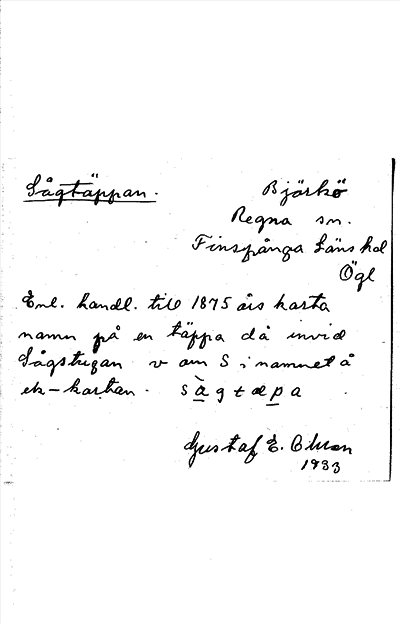 Sågtäppan. Björkö
Regna sn.
Finspånga läns hd
Ögl
Enl. handl. till 1875 års karta
namn på en täppa då invid
Sågstugan v om S i namnet å
ek-kartan. sàgtæpa
Gustaf E. Olsson
1933